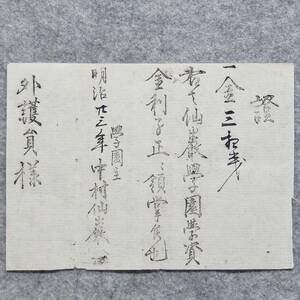 證
一金三拾戋
右ハ仙巖學園學資
金利子正ニ領掌候也
明治廿三年
學園主
中村仙巖
外護員様